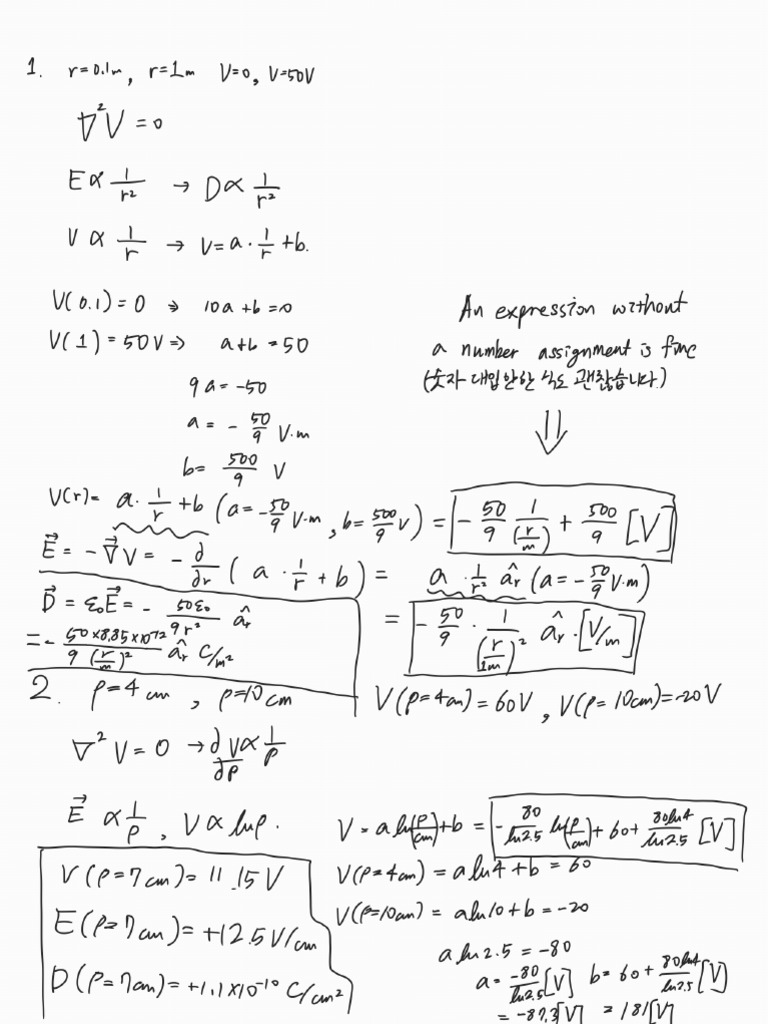 1. r=0.1m, r=1m V=0, V=50V
∇²V=0
E∝1/r² → D∝1/r²
V∝1/r → V=a·1/r+b.
V(0.1)=0 ⇒ 10a+b=0
V(1)=50V ⇒ a+b=50
9a=-50
a=-50/9 V·m
b=500/9 V
An expression without
a number assignment is fine
(숫자 대입 안한 식도 괜찮습니다.)
⇓
V(r)=a·1/r+b (a=-50/9 V·m, b=500/9 V) = -50/9 1/(r/m) + 500/9 [V]
E⃗=-∇⃗V=-∂/∂r(a·1/r+b)= a·1/r² âr (a=-50/9 V·m)
= -50/9·1/(r/1m)² âr·[V/m]
D⃗=ε₀E⃗=-50ε₀/9r² âr
=-50×8.85×10^-12/9(r/m)² âr C/m²
2. ρ=4cm, ρ=10cm V(ρ=4cm)=60V, V(ρ=10cm)=-20V
∇²V=0 → ∂V/∂ρ∝1/ρ
E⃗∝1/ρ, V∝lnρ.
V=a ln(ρ/cm)+b = -80/ln2.5 ln(ρ/cm)+60+80ln4/ln2.5 [V]
V(ρ=4cm)=a ln4+b=60
V(ρ=10cm)=aln10+b=-20
a ln2.5=-80
a=-80/ln2.5[V] b=60+80ln4/ln2.5[V]
=-87.3[V] =181[V]
V(ρ=7cm)=11.15V
E(ρ=7cm)=+12.5V/cm
D(ρ=7cm)=+1.1×10^-10 C/cm²